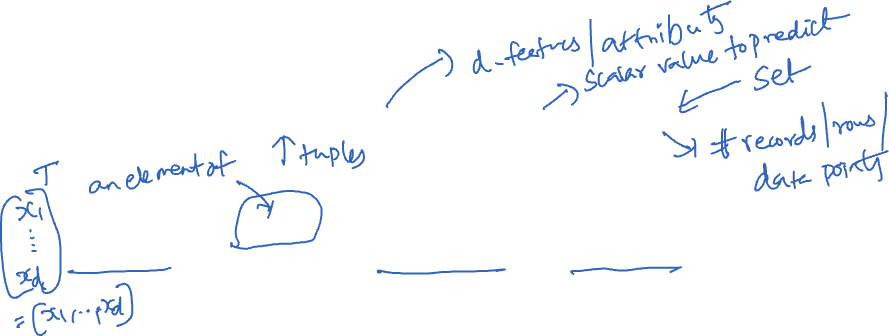 d-features/attributs
scalar value to predict
set
# records/rows/
data points
↑ tuples
an element of
T
x1
⋮
xd
= [x1, ..., xd]